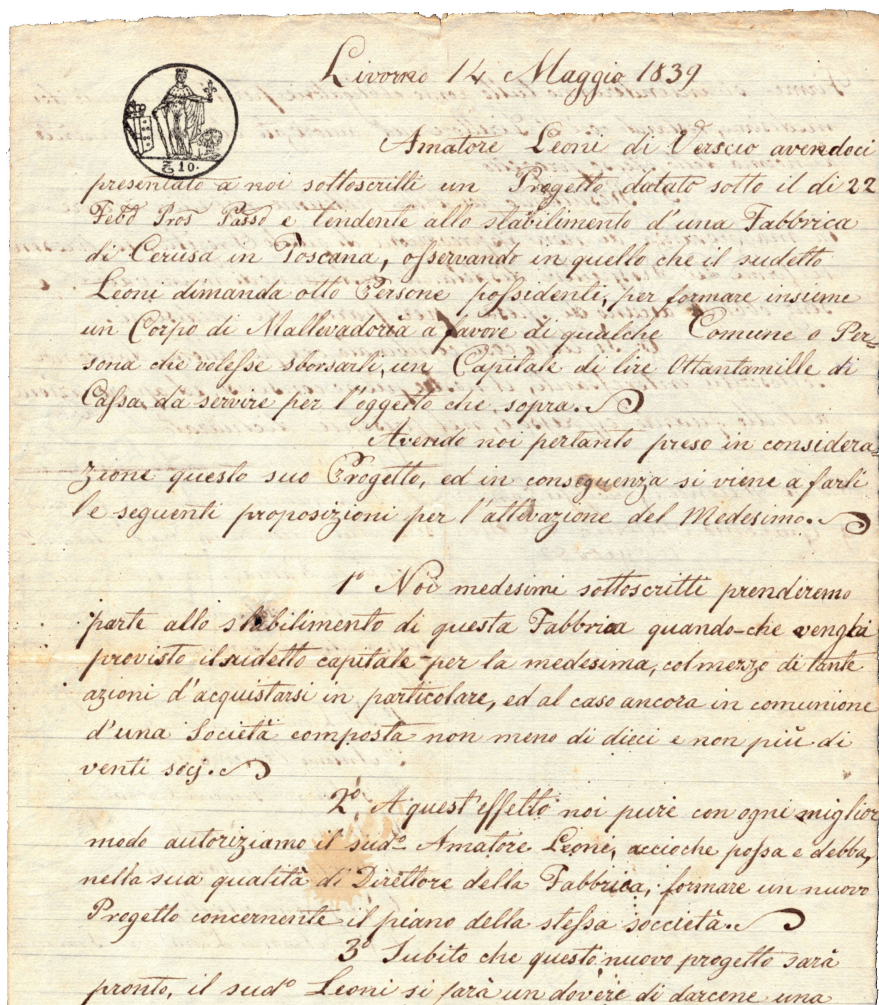 Livorno 14 Maggio 1839
10.
Amatore Leoni di Verscio avendoci
presentato a noi sottoscritti un Progetto datato sotto il di 22
Febº Prosº Passº e tendente allo stabilimento d'una Fabbrica
di Cerusa in Toscana, osservando in quello che il sudetto
Leoni dimanda otto Persone possidenti, per formare insieme
un Corpo di Mallevadoria a favore di qualche Comune o Per=
sona che volesse sborsarli, un Capitale di lire Ottantamille di
Cassa da servire per l'oggetto che sopra.
Avendo noi pertanto preso in considera=
zione questo suo Progetto, ed in conseguenza si viene a farli
le seguenti proposizioni per l'attivazione del Medesimo.
1º Noi medesimi sottoscritti prenderemo
parte allo stabilimento di questa Fabbrica quando-che venghi
provisto il sudetto capitale per la medesima, col mezzo di tante
azioni d'acquistarsi in particolare, ed al caso ancora in comunione
d'una Società composta non meno di dieci e non più di
venti socj.
2º A quest'effetto noi pure con ogni miglior
modo autoriziamo il sudº Amatore Leoni, accioche possa e debba,
nella sua qualità di Direttore della Fabbrica, formare un nuovo
Progetto concernente il piano della stessa soccietà.
3º Subito che questo nuovo progetto sarà
pronto, il sudº Leoni si farà un dovere di darcene una